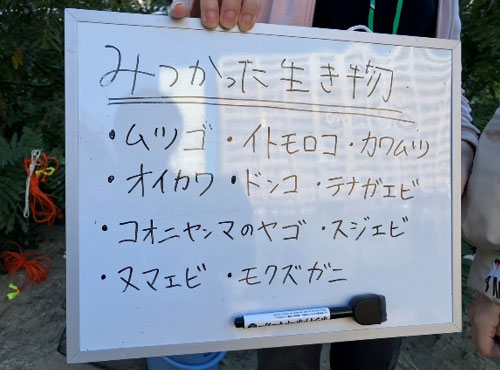 みつかった生き物
・ムツゴ ・イトモロコ ・カワムツ
・オイカワ ・ドンコ ・テナガエビ
・コオニヤンマのヤゴ ・スジエビ
・ヌマエビ ・モクズガニ